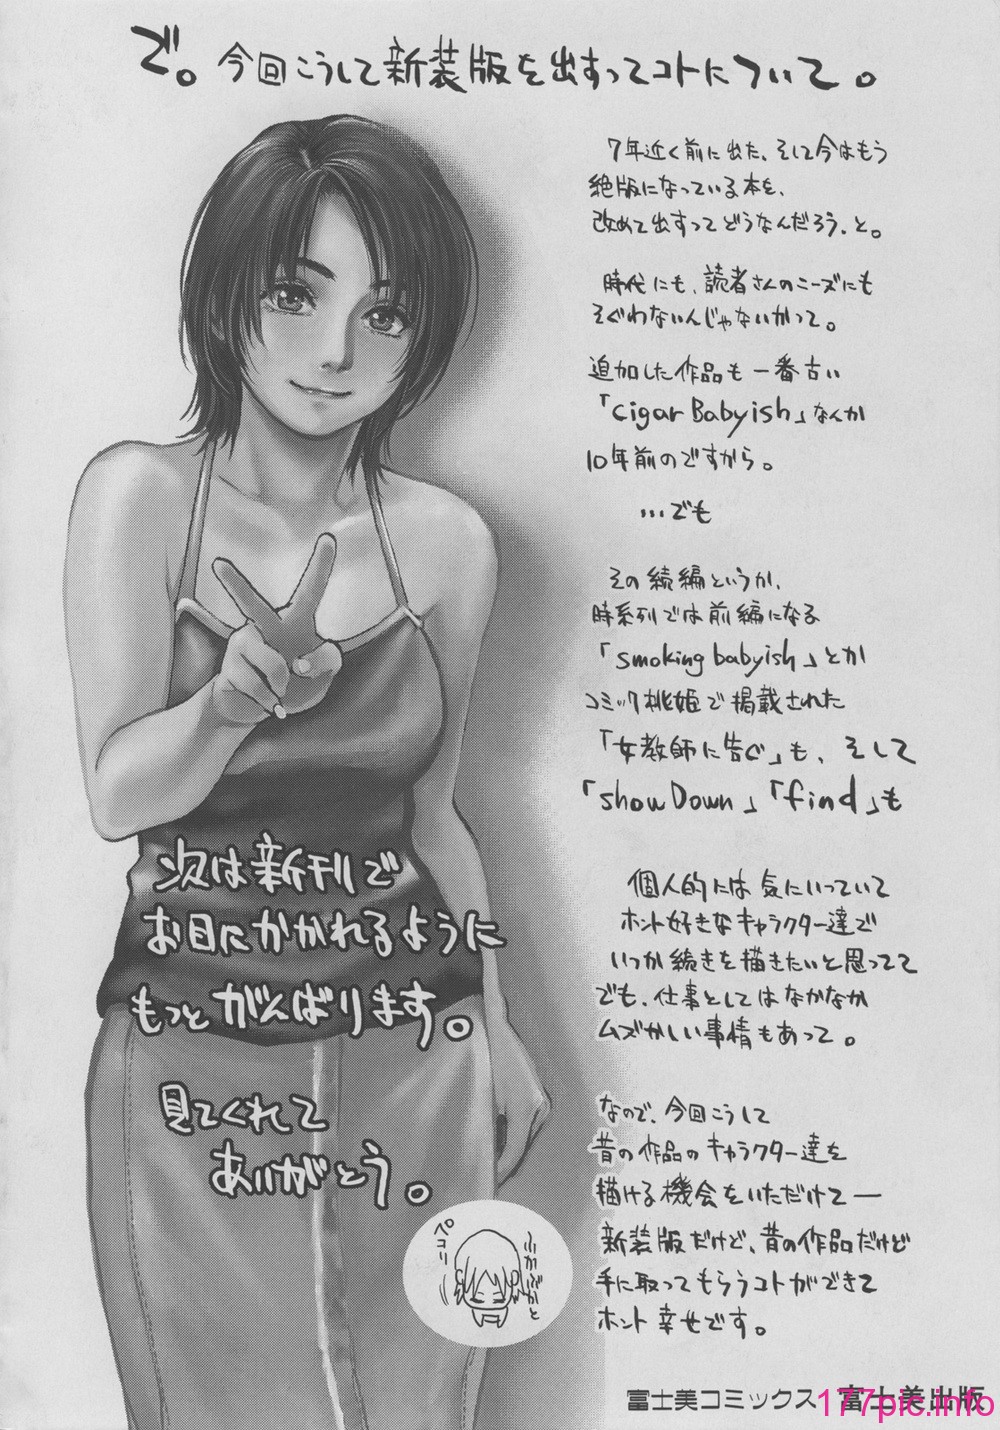 で。今回こうして新装版を出すってコトについて。
7年近く前に出た、そして今はもう
絶版になっている本を、
改めて出すってどうなんだろう、と。
時代にも、読者さんのニーズにも
そぐわないんじゃないかって。
追加した作品も一番古い
「cigar Babyish」なんか
10年前のですから。
…でも
その続編というか、
時系列では前編になる
「smoking babyish」とか
コミック桃姫で掲載された
「女教師に告ぐ」も、そして
「showDown」「find」も
個人的には気にいっていて
ホント好きなキャラクター達で
いつか続きを描きたいと思ってて
でも、仕事としてはなかなか
ムズかしい事情もあって。
なので、今回こうして
昔の作品のキャラクター達を
描ける機会をいただけて―
新装版だけど、昔の作品だけど
手に取ってもらうコトができて
ホント幸せです。
次は新刊で
お目にかかれるように
もっとがんばります。
見てくれて
ありがとう。
ペコリ
〜ふかぶかと
富士美コミックス 富士美出版
177pic.info